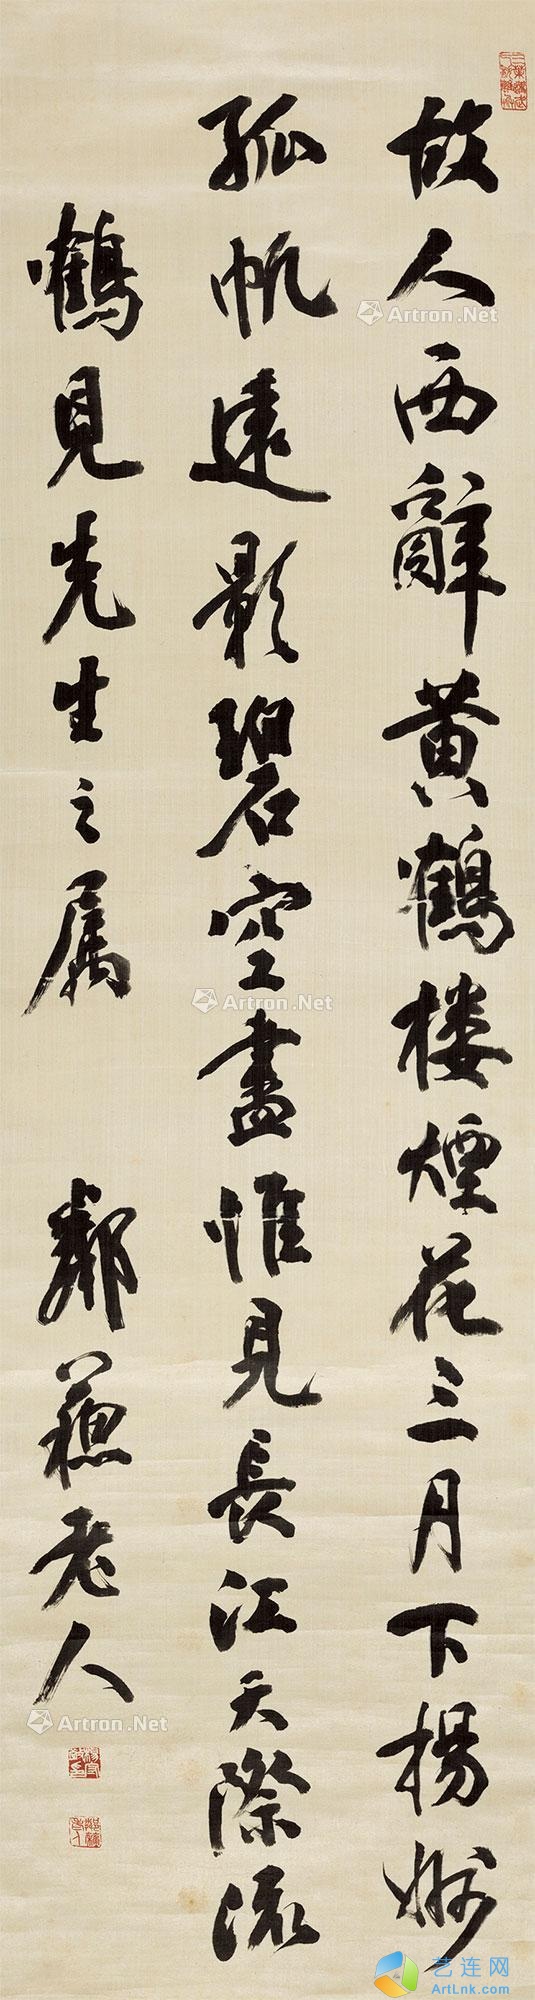 故人西辭黄鶴楼煙花三月下揚州
孤帆遠影碧空盡惟見長江天際流
鶴見先生之属
鄰蘇老人
Artron.Net
Artron.Net
Artron.Net
Artron.Net
Artron.Net
艺连网
ArtLnk.com